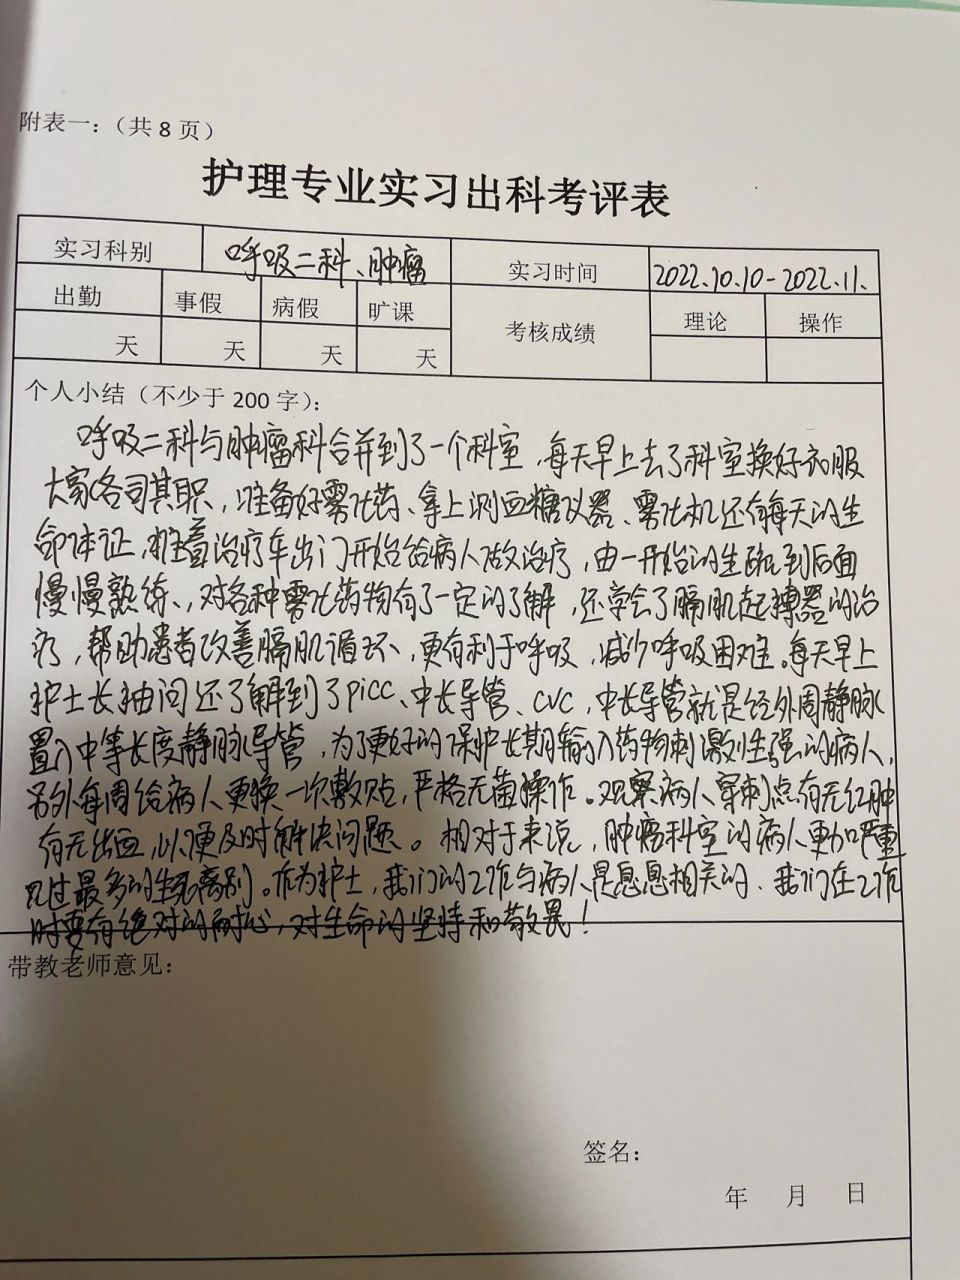 附表一：（共 8 页）
护理专业实习出科考评表
实习科别 呼吸二科、肿瘤 实习时间 2022.10.10-2022.11.
出勤 事假 病假 旷课 考核成绩 理论 操作
天 天 天 天
个人小结（不少于 200 字）：
呼吸二科与肿瘤科合并到了一个科室，每天早上去了科室换好衣服
大家各司其职，准备好雾化药、拿上测血糖仪器、雾化机还有每天的生
命体证，推着治疗车出门开始给病人做治疗，由一开始的生疏到后面
慢慢熟练、，对各种雾化药物有了一定的了解，还学会了膈肌起搏器的治
疗，帮助患者改善膈肌循环、更有利于呼吸，减少呼吸困难。每天早上
护士长抽问还了解到了picc、中长导管、CVC，中长导管就是经外周静脉
置入中等长度静脉导管，为了更好的保护长期输入药物刺激性强的病人，
另外每周给病人更换一次敷贴，严格无菌操作。观察病人穿刺点有无红肿
有无出血，以便及时解决问题。相对于来说，肿瘤科室的病人更加严重
见过最多的生死离别。作为护士，我们的工作与病人是息息相关的、我们在工作
时要有绝对的耐心，对生命的坚持和敬畏！
带教老师意见：
签名：
年 月 日